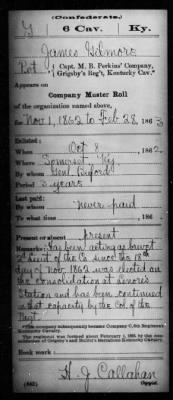 (Confederate.)
G 6 Cav. Ky.
James Gilmore
Pvt { Capt. M. B. Perkins' Company,
Grigsby's Reg't, Kentucky Cav.*
Appears on
Company Muster Roll
of the organization named above,
for Nov 1, 1862 to Feb 28, 1863
Enlisted:
When Oct 8, 1862.
Where Somerset, Ky.
By whom Gent Buford
Period 3 years
Last paid:
By whom never paid
To what time , 186 .
Present or absent present
Remarks: Has been acting as brevet
2d Lieut of the Co since the 18th
day of Nov, 1862 was elected on
the consolidation at Lenoir's
Station and has been continued
in that capacity by the Col. of the
Regt.
*This company subsequently became Company G, 6th Regiment
Kentucky Cavalry.
Book mark:
H. J. Callahan
(642) Copyist.